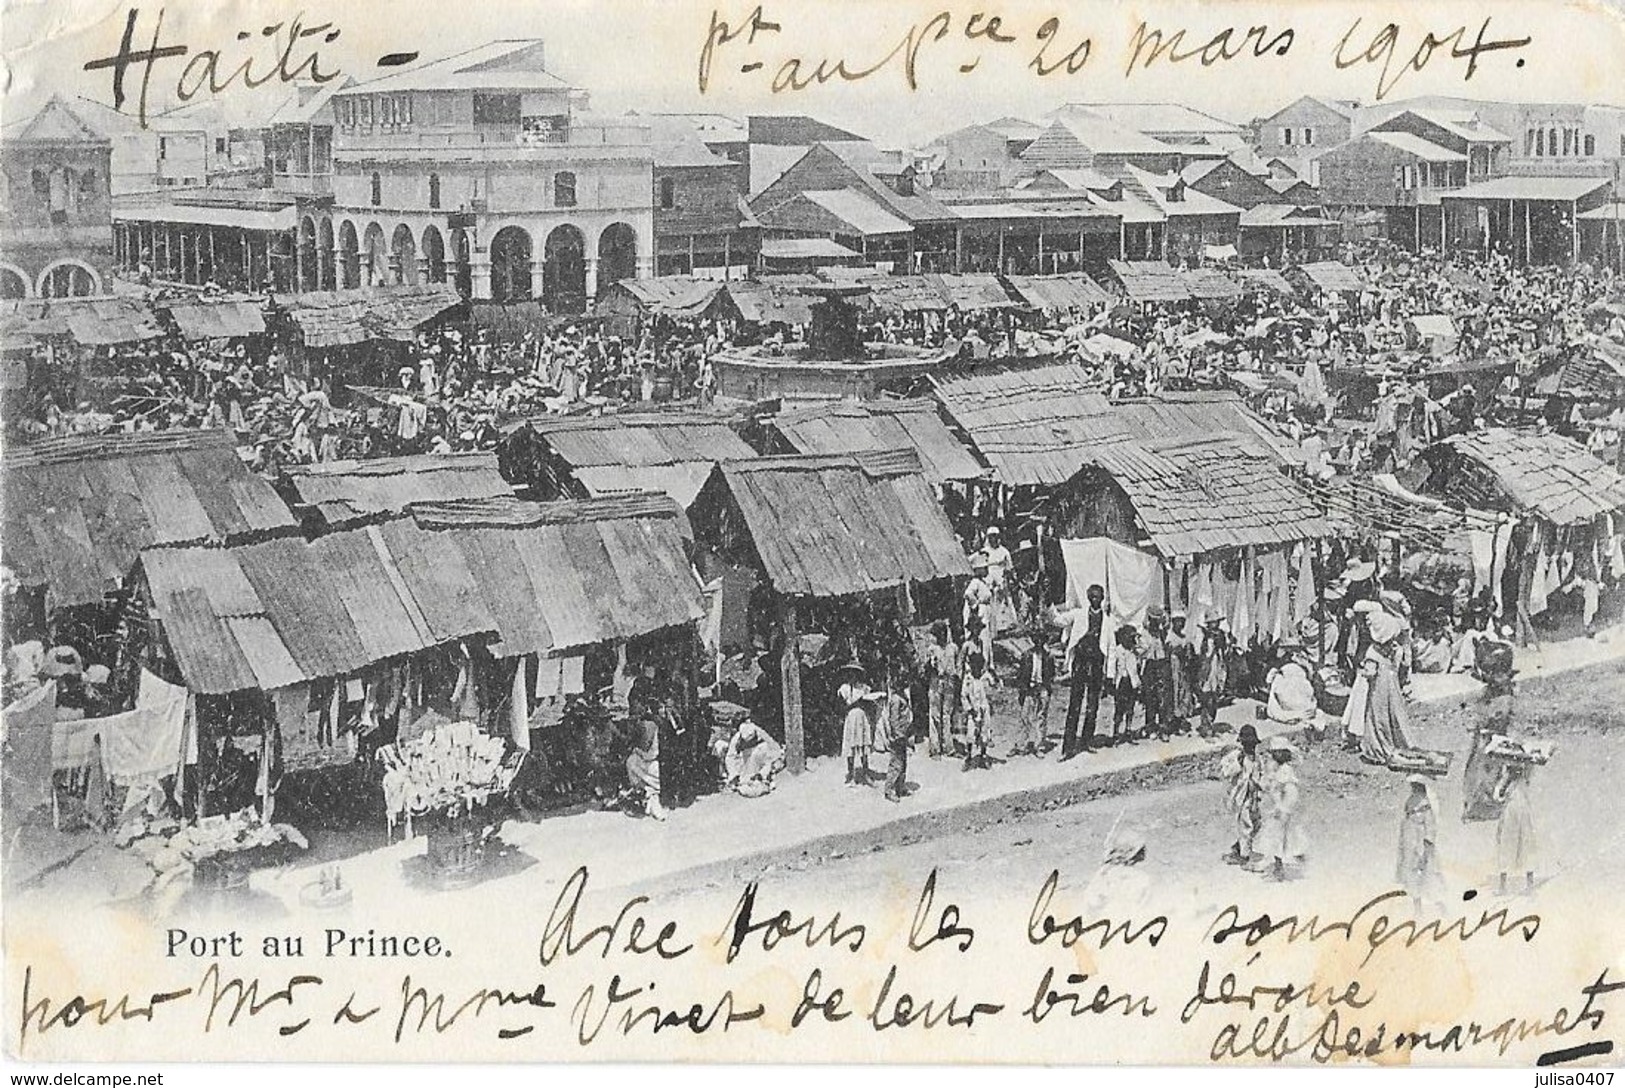 Haïti - Pt au Pce 20 mars 1904.
Port au Prince.
Avec tous les bons souvenirs
pour Mr & Mme Viret de leur bien dévoué
alb Desmarquets
delcampe.net
julisa0407